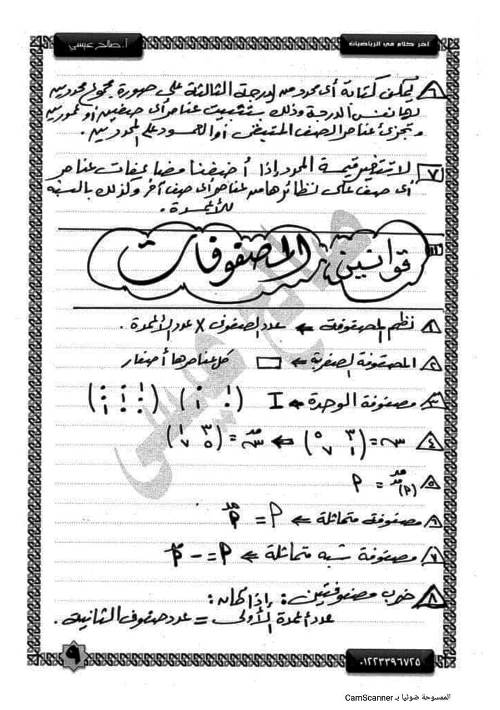 آخر كلام في الرياضيات
أ. صالح عيسى
٦ يمكن كتابة أى محدد من الدرجة الثالثة على صورة مجموع محددين
لهما نفس الدرجة وذلك بتثبيت عناصر أى صفين أو عمودين
وتجزئ عناصر الصف المتبقى أو العمود على المحددين.
٧ لا تتغير قيمة المحدد إذا أضيفنا مضاعفات عناصر
أى صف على نظائرها من عناصر أى صف آخر وكذلك بالنسبة
للأعمدة.
قوانين المصفوفات
١ نظم المصفوفة ⇐ عدد الصفوف × عدد الأعمدة.
٢ المصفوفة الصفرية ⇐ كل عناصرها أصفار
٣ مصفوفة الوحدة ⇐ I
٤
٥
٦ مصفوفة متماثلة ⇐
٧ مصفوفة شبه متماثلة ⇐
٨ ضرب مصفوفتين: إذا كان:
عدد أعمدة الأولى = عدد صفوف الثانية.
٩
٠١٢٢٣٣٩٦٧٢٥
الممسوحة ضوئيا بـ CamScanner